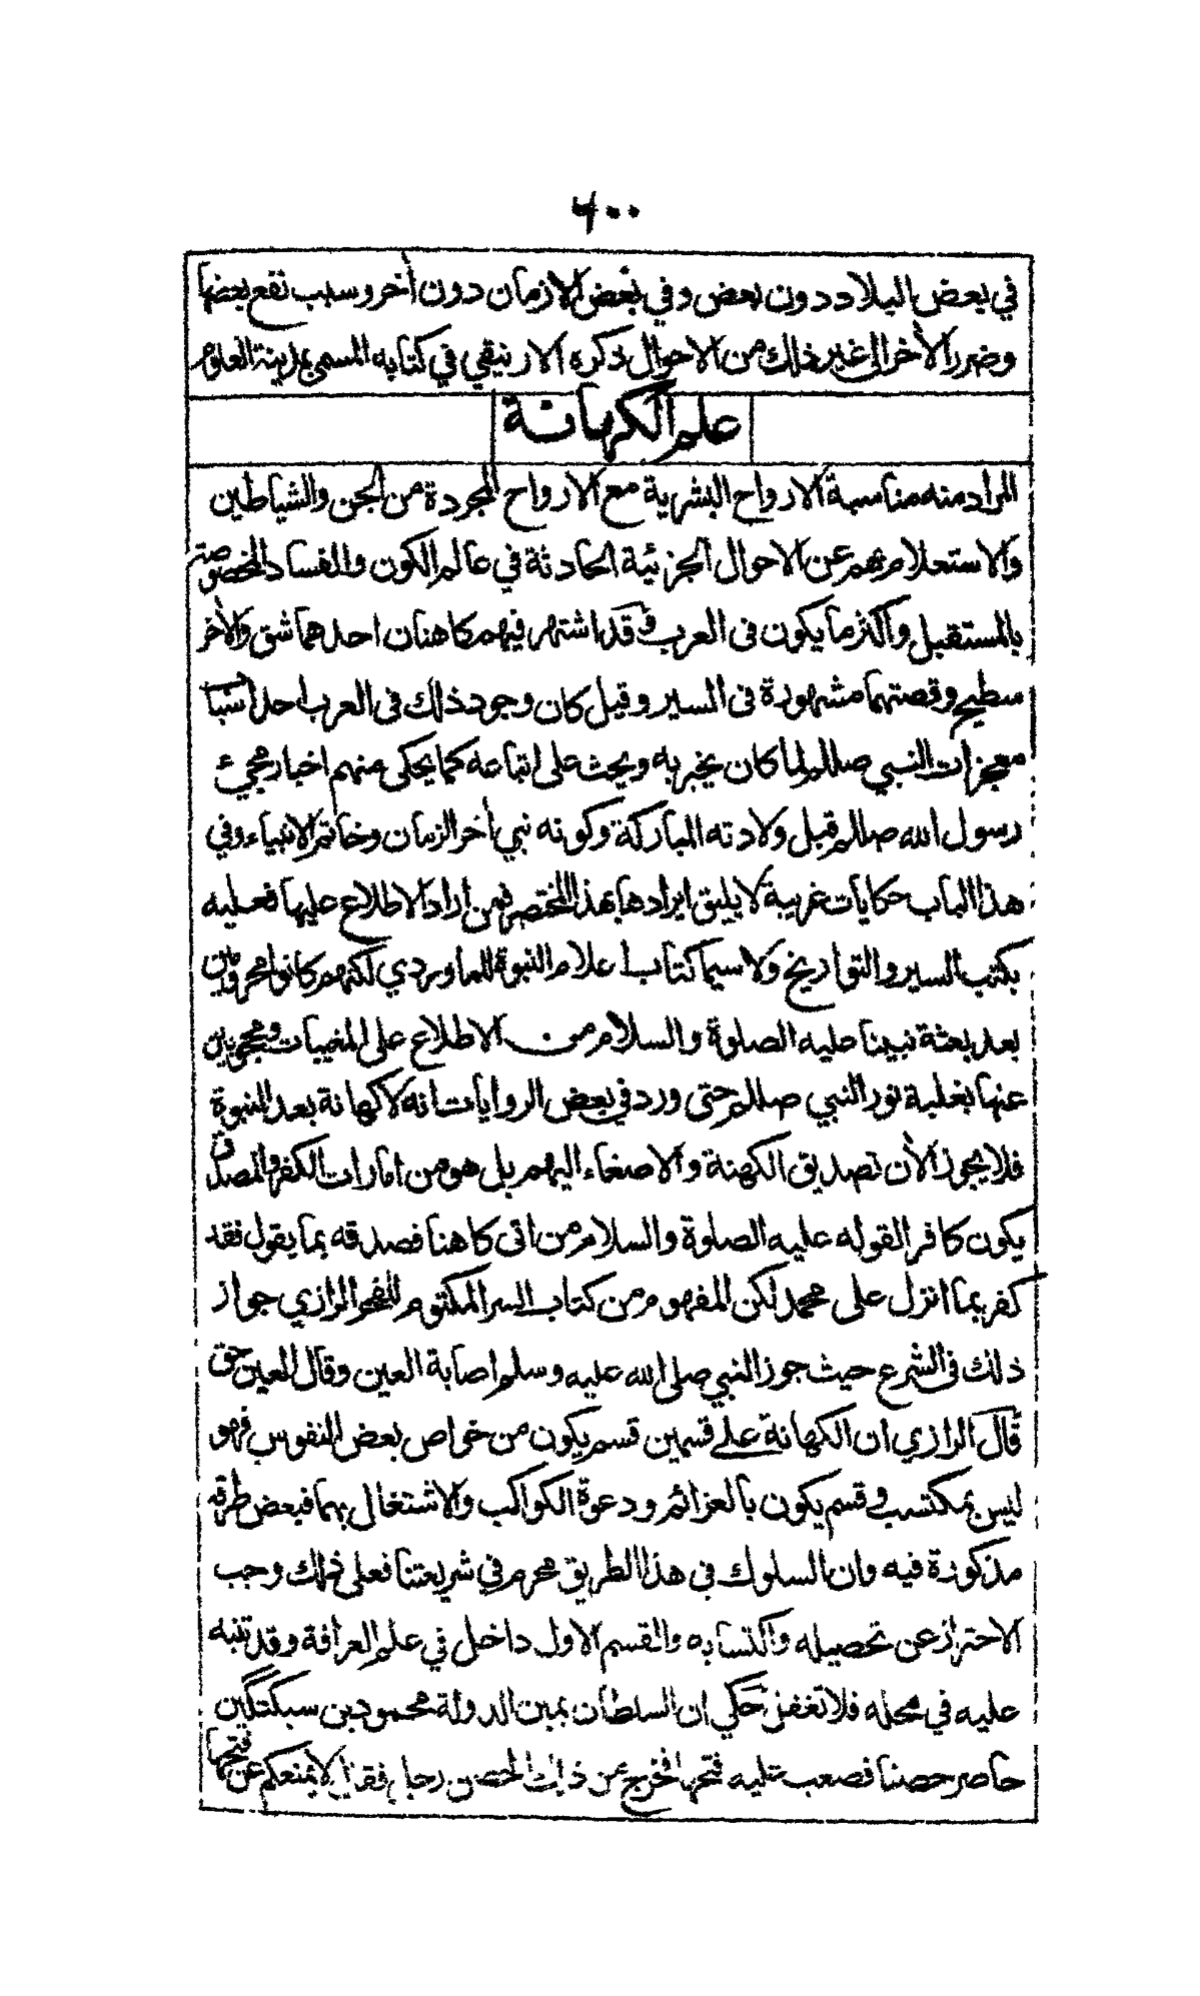 ٦٠٠
في بعض البلاد دون بعض وفي بعض الازمان دون أخر وسبب نفع بعضها
وضرر الأخر الى غير ذلك من الاحوال ذكره الارنيقي في كتابه المسمى بمدينة العلوم
علم الكهانة
المراد منه مناسبة الارواح البشرية مع الارواح المجردة من الجن والشياطين
والاستعلام بهم عن الاحوال الجزئية الحادثة في عالم الكون والفساد المخصوصة
بالمستقبل واكثر ما يكون فى العرب وقد اشتهر فيهم كاهنان احدهما شق والأخر
سطيح وقصتهما مشهورة فى السير وقيل كان وجود ذلك فى العرب احد اسبا
معجزات النبي صللم لما كان يخبر به ويحث على اتباعه كما يحكى عنهم اخبار مجيئ
رسول الله صللم قبل ولادته المباركة وكونه نبي أخر الزمان وخاتم الانبياء وفي
هذا الباب حكايات غريبة لا يليق ايرادها بهذا المختصر فمن اراد الاطلاع عليها فعليه
بكتب السير والتواريخ ولا سيما كتاب اعلام النبوة للماوردي لكنهم كانوا محرومين
بعد بعثة نبينا عليه الصلوة والسلام من الاطلاع على المغيبات ومحجوبين
عنها بغلبة نور النبي صللم حتى ورد في بعض الروايات انه لا كهانة بعد النبوة
فلا يجوز الأن تصديق الكهنة والاصغاء اليهم بل هو من امارات الكفر والمصدق
يكون كافرا لقوله عليه الصلوة والسلام من اتى كاهنا فصدقه بما يقول فقد
كفر بما انزل على محمد لكن المفهوم من كتاب السر المكتوم للفخر الرازي جواز
ذلك فى الشرع حيث جوز النبي صلى الله عليه وسلم اصابة العين وقال العين حق
قال الرازي ان الكهانة على قسمين قسم يكون من خواص بعض النفوس فهو
ليس بمكتسب وقسم يكون بالعزائم ودعوة الكواكب والاشتغال بهما فبعض طرقه
مذكورة فيه وان السلوك في هذا الطريق محرم في شريعتنا فعلى ذلك وجب
الاحتراز عن تحصيله واكتسابه والقسم الاول داخل في علم العرافة وقد تنبه
عليه في محله فلا تغفل حكي ان السلطان يمين الدولة محمود بن سبكتگين
حاصر حصنا فصعب عليه فتحها فخرج من ذلك الحصن رجل فقال لا يمنعكم عن فتحها